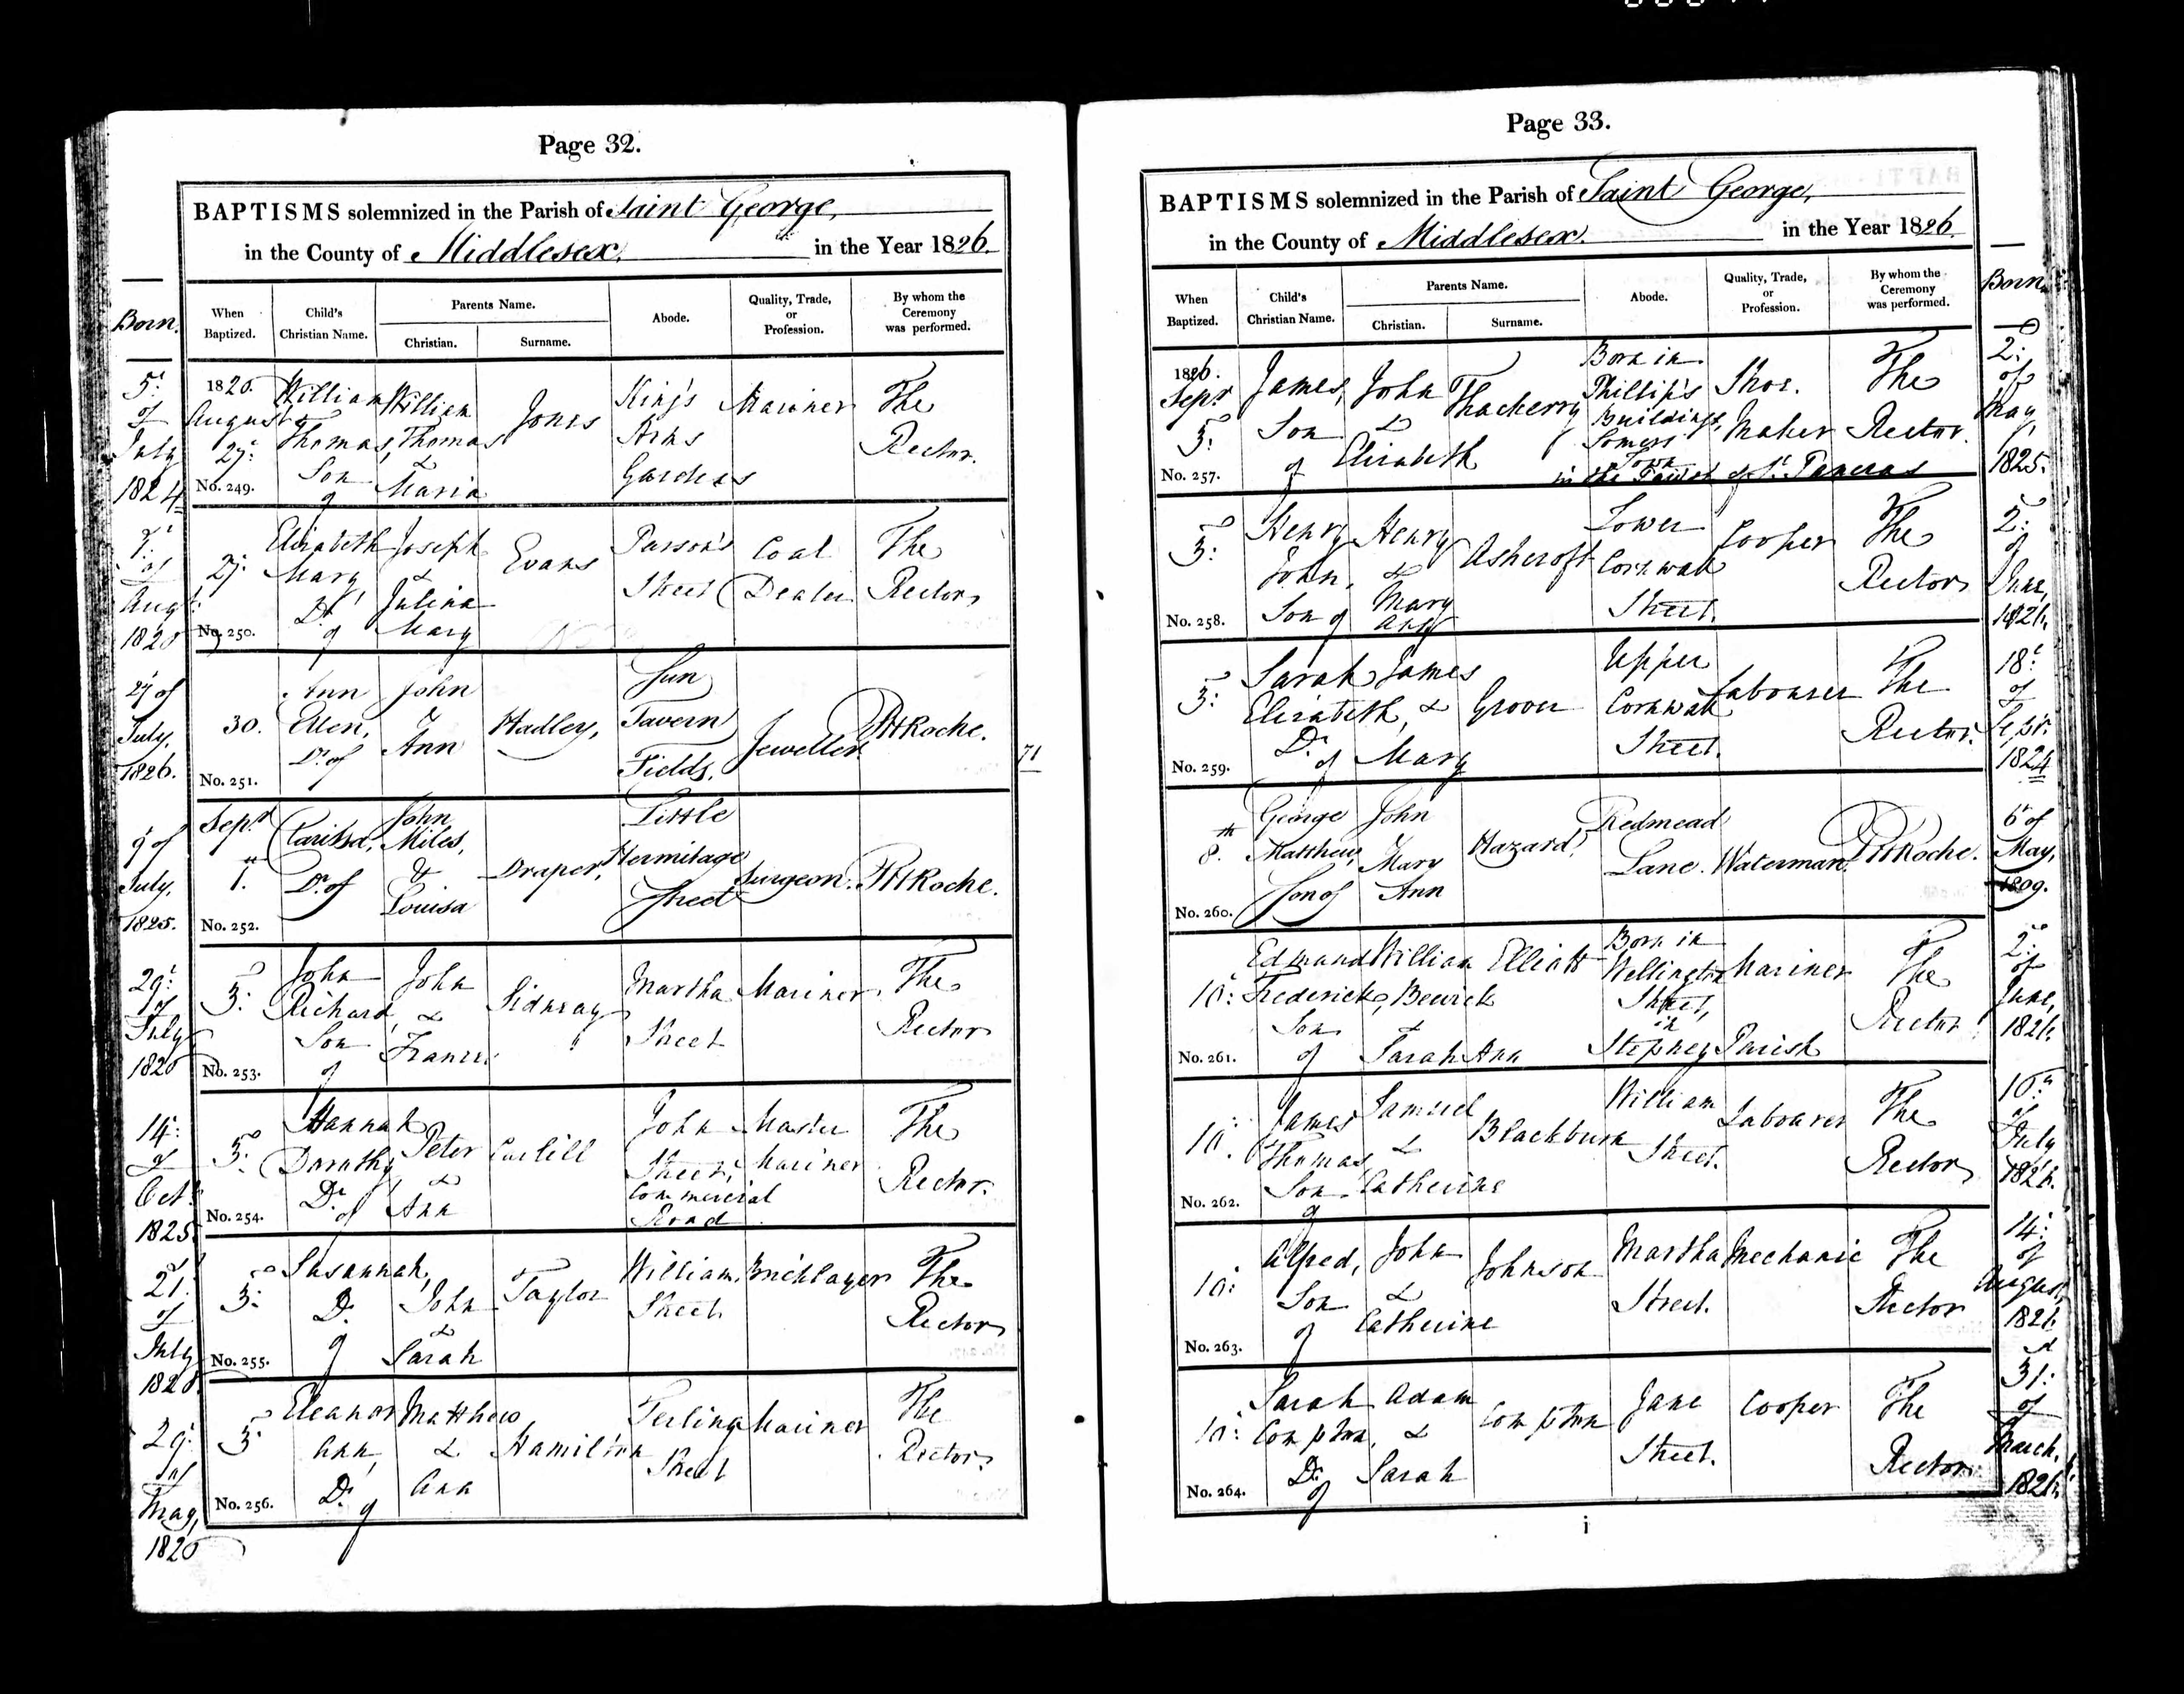 Page 32.
BAPTISMS solemnized in the Parish of Saint George,
in the County of Middlesex. in the Year 1826.
Born.
When Baptized.
Child's Christian Name.
Parents Name.
Christian.
Surname.
Abode.
Quality, Trade, or Profession.
By whom the Ceremony was performed.
5: of July 1824
1826. August 27: No. 249.
William Thomas, Son of
William Thomas & Maria
Jones
King's Arms Gardens
Mariner
The Rector.
of Augt: 1826
27: No. 250.
Elizabeth Mary, Dr. of
Joseph & Julina Mary
Evans
Parson's Street
Coal Dealer
The Rector
27 of July, 1826.
30. No. 251.
Ann Ellen, Dr. of
John & Ann
Hadley,
Sun Tavern Fields,
Jeweller.
RH Roche.
71
9 of July, 1825.
Sepr 1. No. 252.
Clarissa, Dr. of
John Miles, & Louisa
Draper,
Little Hermitage Street
Surgeon.
RH Roche.
29: of July 1826
3: No. 253.
John Richard, Son of
John & Frances
Martha Street
Mariner.
The Rector
14: of Octr 1825
3: No. 254.
Hannah Dorothy, Dr. of
Peter & Ann
Carlill
John Street, Commercial Road
Master Mariner
The Rector.
21: of July 1826
3: No. 255.
Susannah, Dr. of
John & Sarah
Taylor
William Street
Bricklayer
The Rector
29: of May, 1826
3: No. 256.
Eleanor Ann, Dr. of
Matthew & Ann
Hamilton
Perling Street
Mariner
The Rector.
Page 33.
BAPTISMS solemnized in the Parish of Saint George,
in the County of Middlesex. in the Year 1826.
When Baptized.
Child's Christian Name.
Parents Name.
Christian.
Surname.
Abode.
Quality, Trade, or Profession.
By whom the Ceremony was performed.
Born
1826. Sepr 3: No. 257.
James, Son of
John & Elizabeth
Thackerry
Born in Phillip's Buildings, Somers Town in the Parish of St. Pancras
Shoe Maker
The Rector.
2: of May, 1825.
3: No. 258.
Henry John, Son of
Henry & Mary Ann
Ashcroft
Lower Cornwall Street.
Cooper
The Rector
2: of June, 1826.
3: No. 259.
Sarah Elizabeth, Dr. of
James & Mary
Groover
Upper Cornwall Street.
Labourer
The Rector.
18: of Sepr. 1824
8th. No. 260.
George Matthew, Son of
John Mary Ann
Hazard,
Redmead Lane.
Waterman.
RH Roche.
6 of May, 1809.
10: No. 261.
Edmund Frederick, Son of
William Bewick & Sarah Ann
Elliott
Born in Wellington Street, in Stepney Parish
Mariner
The Rector
2: of June, 1826.
10: No. 262.
James Thomas, Son of
Samuel & Catherine
Blackburn
William Street.
Labourer
The Rector
10: of July 1826.
10: No. 263.
Alfred, Son of
John & Catherine
Johnson
Martha Street.
Mechanic
The Rector
14: of August, 1826
10: No. 264.
Sarah Compton, Dr. of
Adam & Sarah
Compton
Jane Street.
Cooper
The Rector
31: of March, 1826.
i